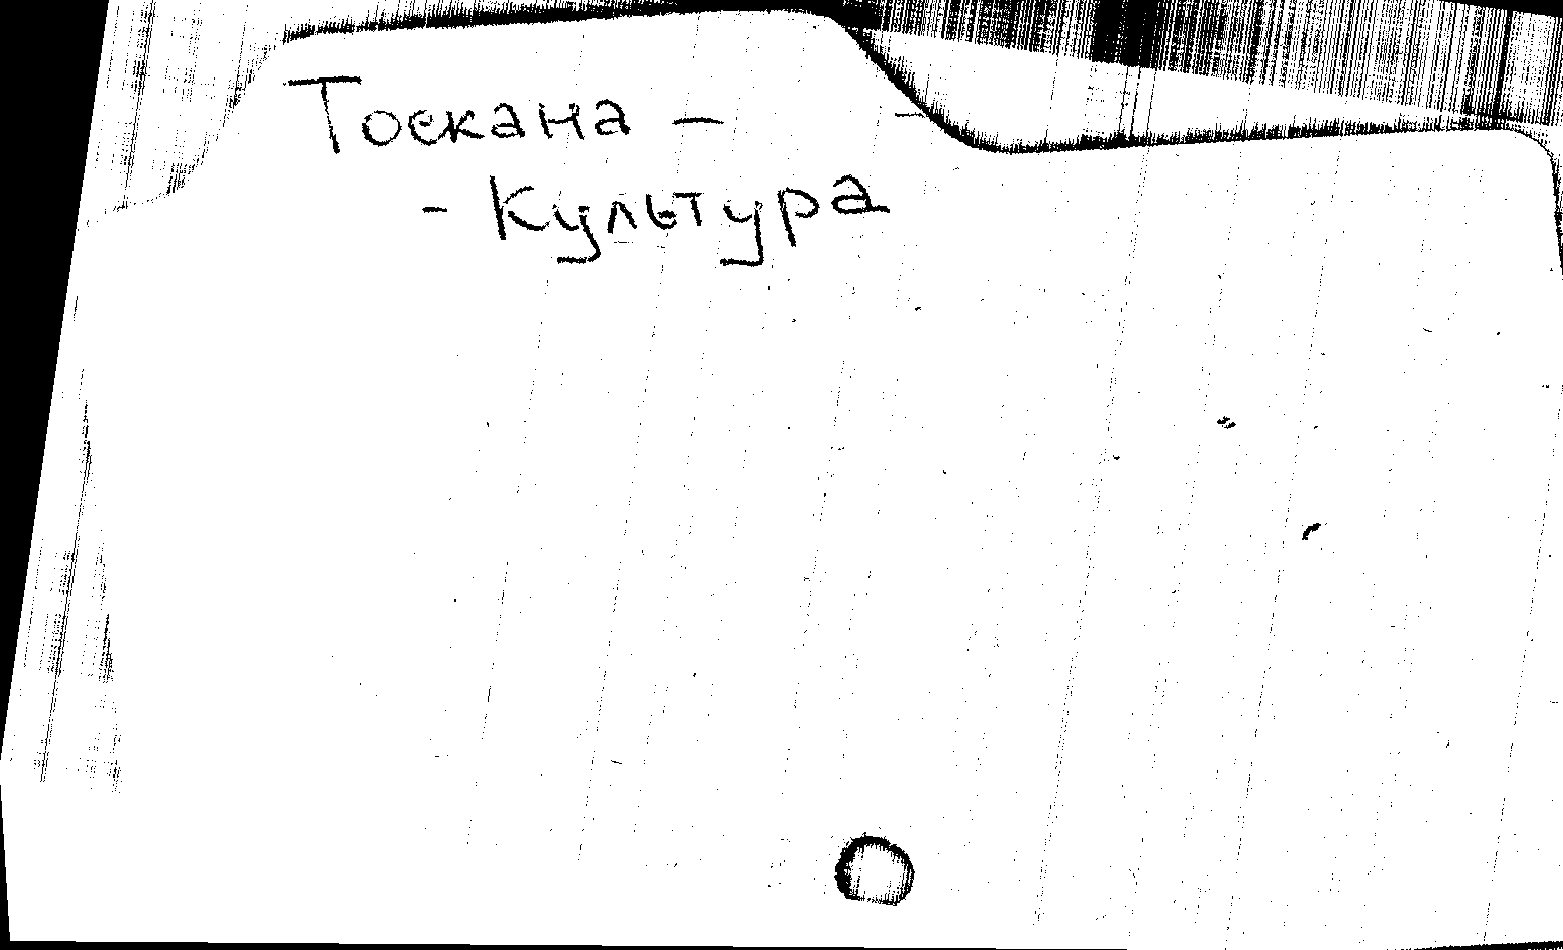 Тоскана -
- Культура